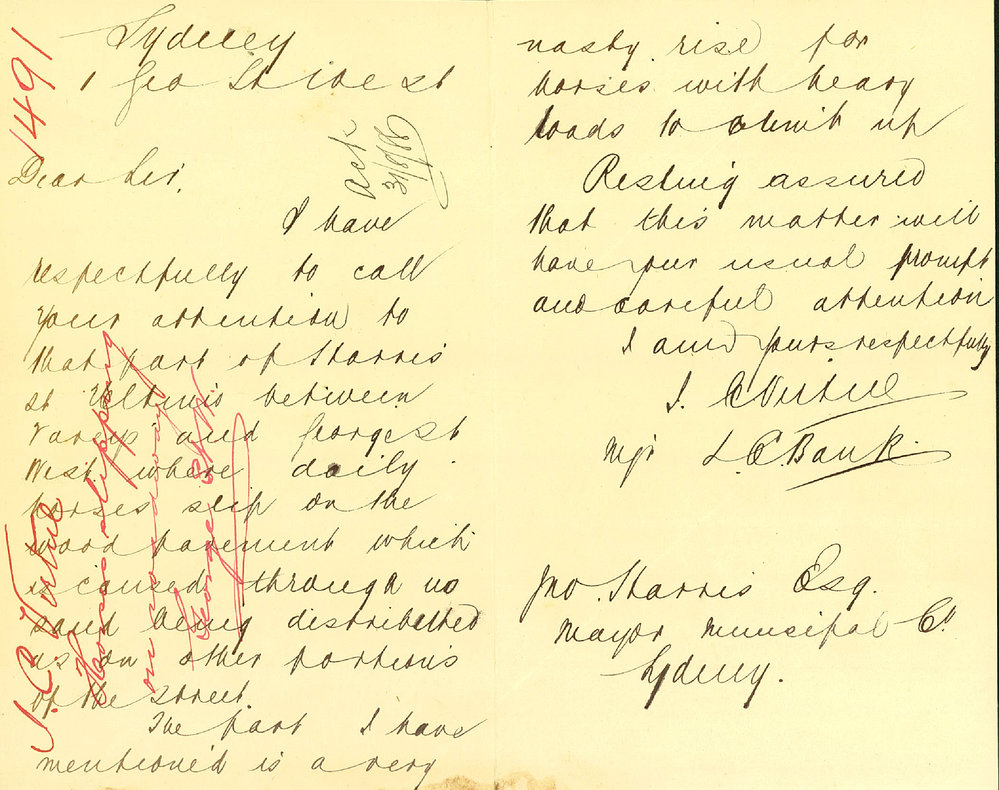 Sydney
1 Geo St West
Ack
3/8/00
Dear Sir,
I have
respectfully to call
your attention to
that part of Harris
st Ultimo between
and George st
West where daily
horses slip on the
wood pavement which
is caused through no
sand being distributed
as on other portions
of the street.
The part I have
mentioned is a very
nasty rise for
horses with heavy
loads to climb up
Resting assured
that this matter will
have your usual prompt
and careful attention
I am yours respectfully
J. C Virtue
Mgr S. C. Bank.
Jno. Harris Esq.
Mayor Municipal Cl
Sydney.
1491
J. C. Virtue
Horses slipping
on wood
George St W